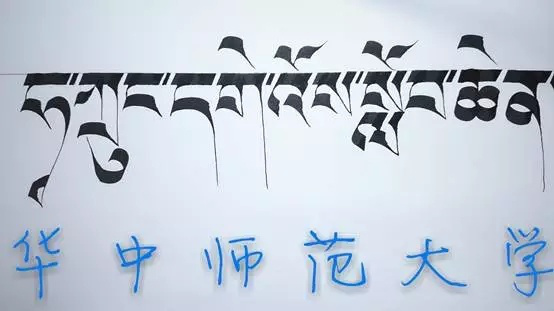 ཧྭ་ཀྲུང་དགེ་འོས་སློབ་ཆེན
华中师范大学